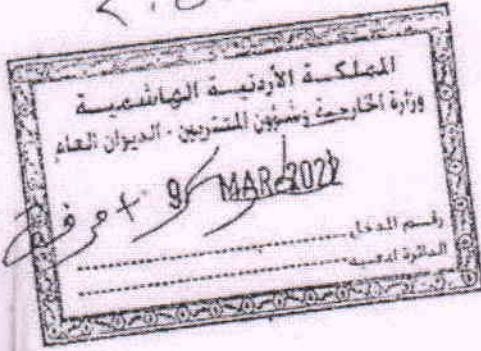 المملكة الأردنية الهاشمية
وزارة الخارجية وشؤون المغتربين - الديوان العام
9 MAR 2022
رقم المدخل
الدائرة